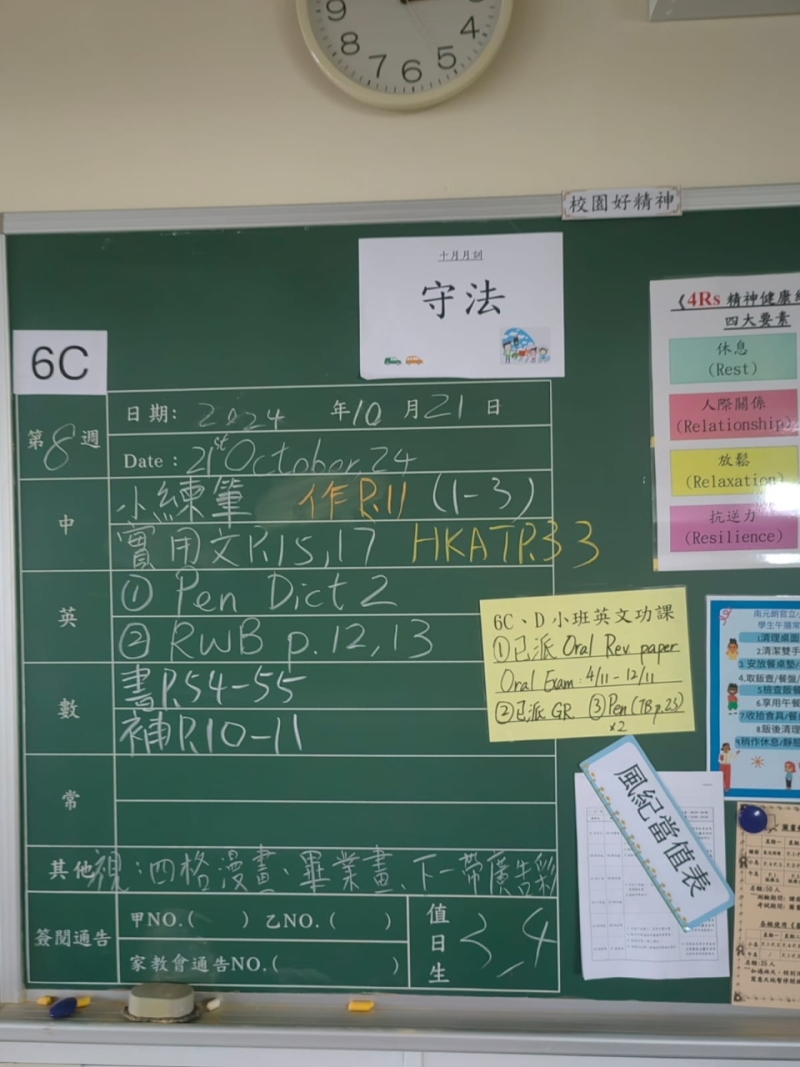 9
8
7
6
5
4
校園好精神
十月月訓
守法
6C
第8週
日期: 2024 年10月21日
Date : 21st October, 24
中
小練筆 作P.11 (1-3)
實用文P.15,17 HKATP.33
英
① Pen Dict 2
② RWB p.12,13
數
書P.54-55
補P.10-11
常
其他
視:四格漫畫、畢業畫、下一帶廣告彩
簽閱通告
甲NO.( ) 乙NO. ( )
家教會通告NO.( )
值日生
3, 4
6C、D小班英文功課
①已派 Oral Rev paper
Oral Exam : 4/11 - 12/11
②已派 GR ③Pen (TB p.25)
x2
《4Rs 精神健康
四大要素
休息
(Rest)
人際關係
(Relationship)
放鬆
(Relaxation)
抗逆力
(Resilience)
南元朗官立小
學生午膳
1.清理桌面
2.清潔雙手
3.安放餐桌墊/
4.取飯壺/餐盤/
5.檢查飯餐
6.享用午餐
7.收拾食具/餐
8.飯後清理
9.稍作休息/靜態
風紀當值表